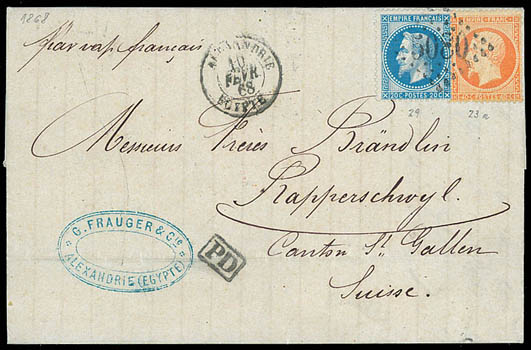 1868
par vap. français
ALEXANDRIE
10
FEVR.
68
EGYPTE
EMPIRE FRANÇAIS
20c POSTES 20c
EMPIRE FRANC
40c POSTES 40c
5080
29
23a
Messieurs Frères Brändlin
Rapperschwyl.
Canton St. Gallen
Suisse.
G. FRAUGER & Cie
ALEXANDRIE (EGYPTE)
PD